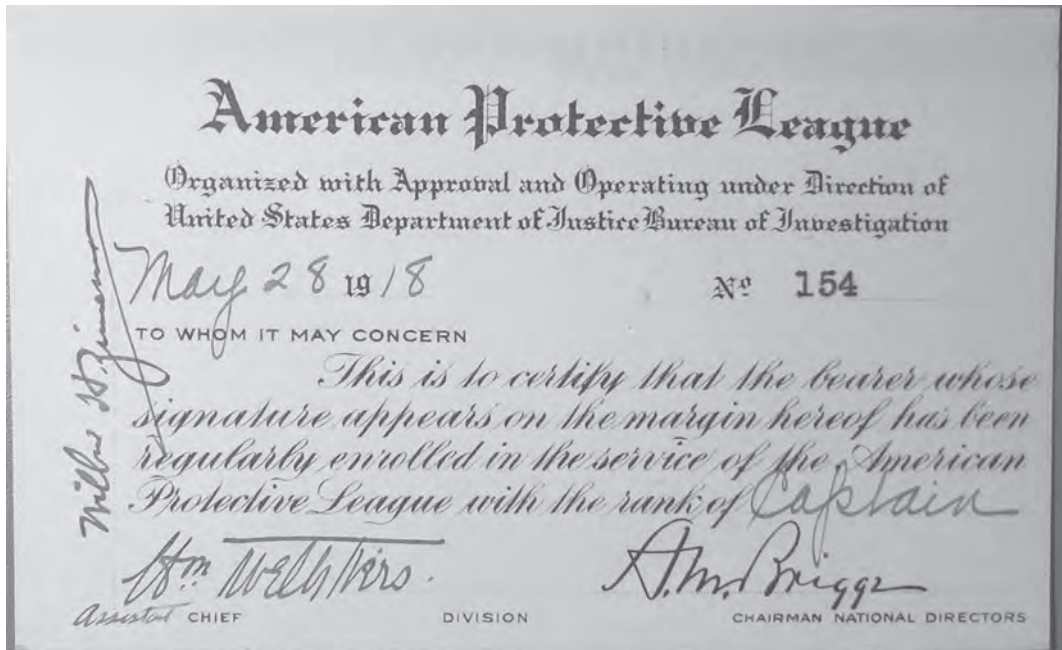 American Protective League
Organized with Approval and Operating under Direction of
United States Department of Justice Bureau of Investigation
May 28 1918 No 154
TO WHOM IT MAY CONCERN
This is to certify that the bearer whose
signature appears on the margin hereof has been
regularly enrolled in the service of the American
Protective League with the rank of Captain
A.M. Briggs
Assistant CHIEF DIVISION CHAIRMAN NATIONAL DIRECTORS